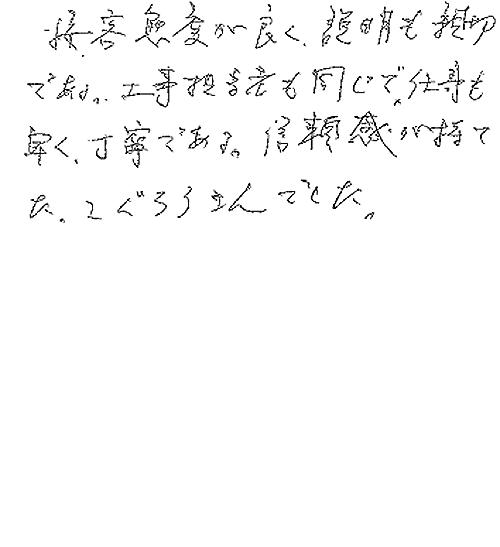 接客態度が良く、説明も親切
である。工事担当者も同じで、仕事も
早く、丁寧である。信頼感が持て
た。ごくろうさんでした。